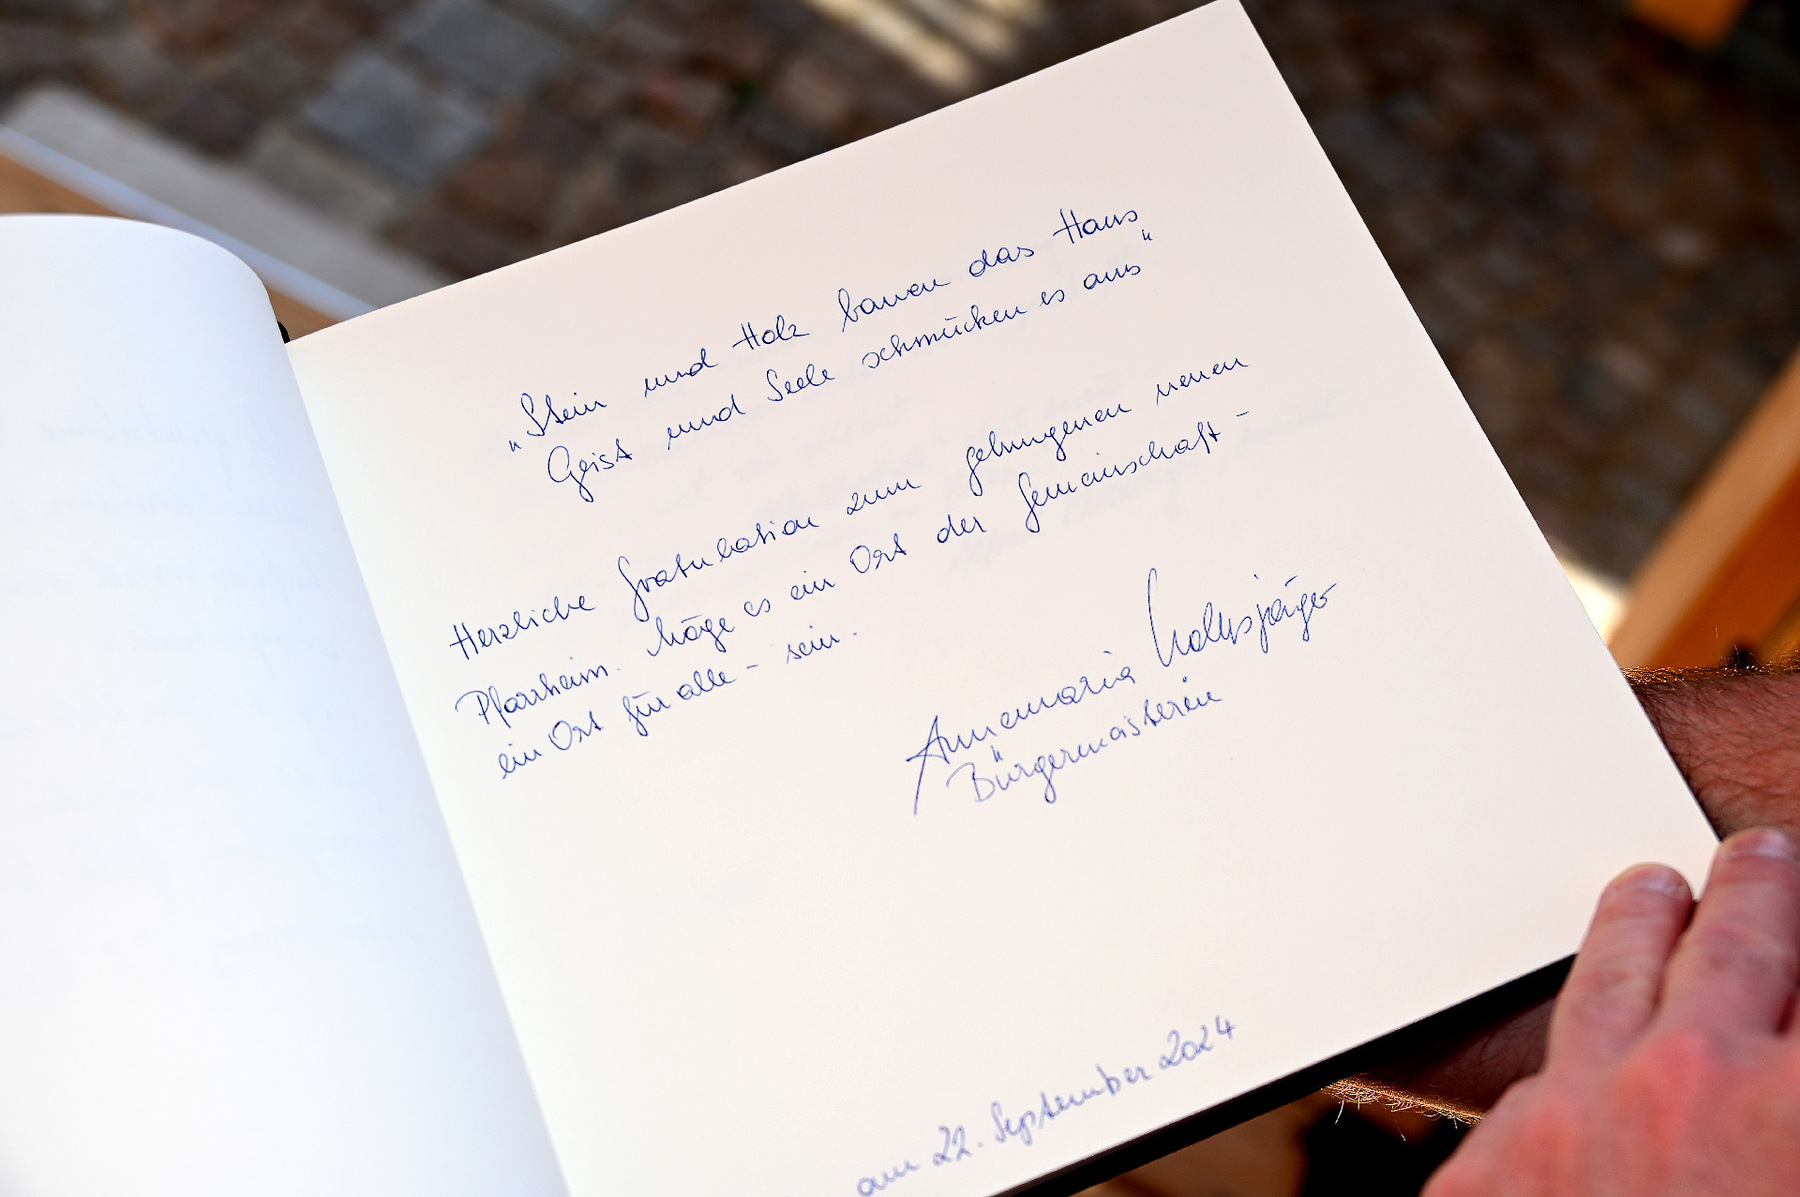 „Stein und Holz bauen das Haus
Geist und Seele schmücken es aus“
Herzliche Gratulation zum gelungenen neuen
Pfarrheim. Möge es ein Ort der Gemeinschaft –
ein Ort für alle – sein.
Annemaria Volksjäger
Bürgermeisterin
am 22. September 2024